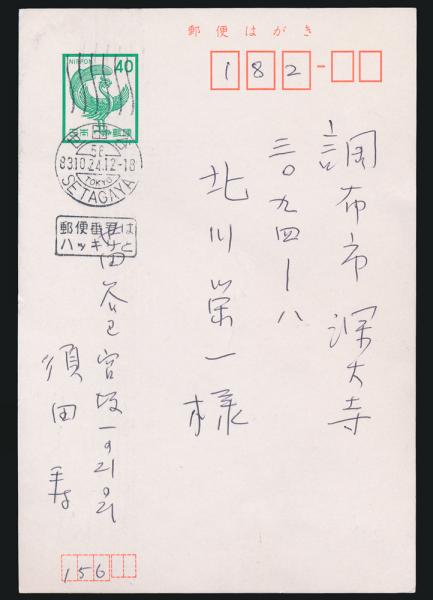 郵便はがき
182-
NIPPON
40
日本郵便
56
8310.24.12-18
TOKYO
SETAGAYA
郵便番号は
ハッキリと
調布市深大寺
三〇九四ー八
北川栄一様
世田谷区宮坂一の21の21
須田寿
156